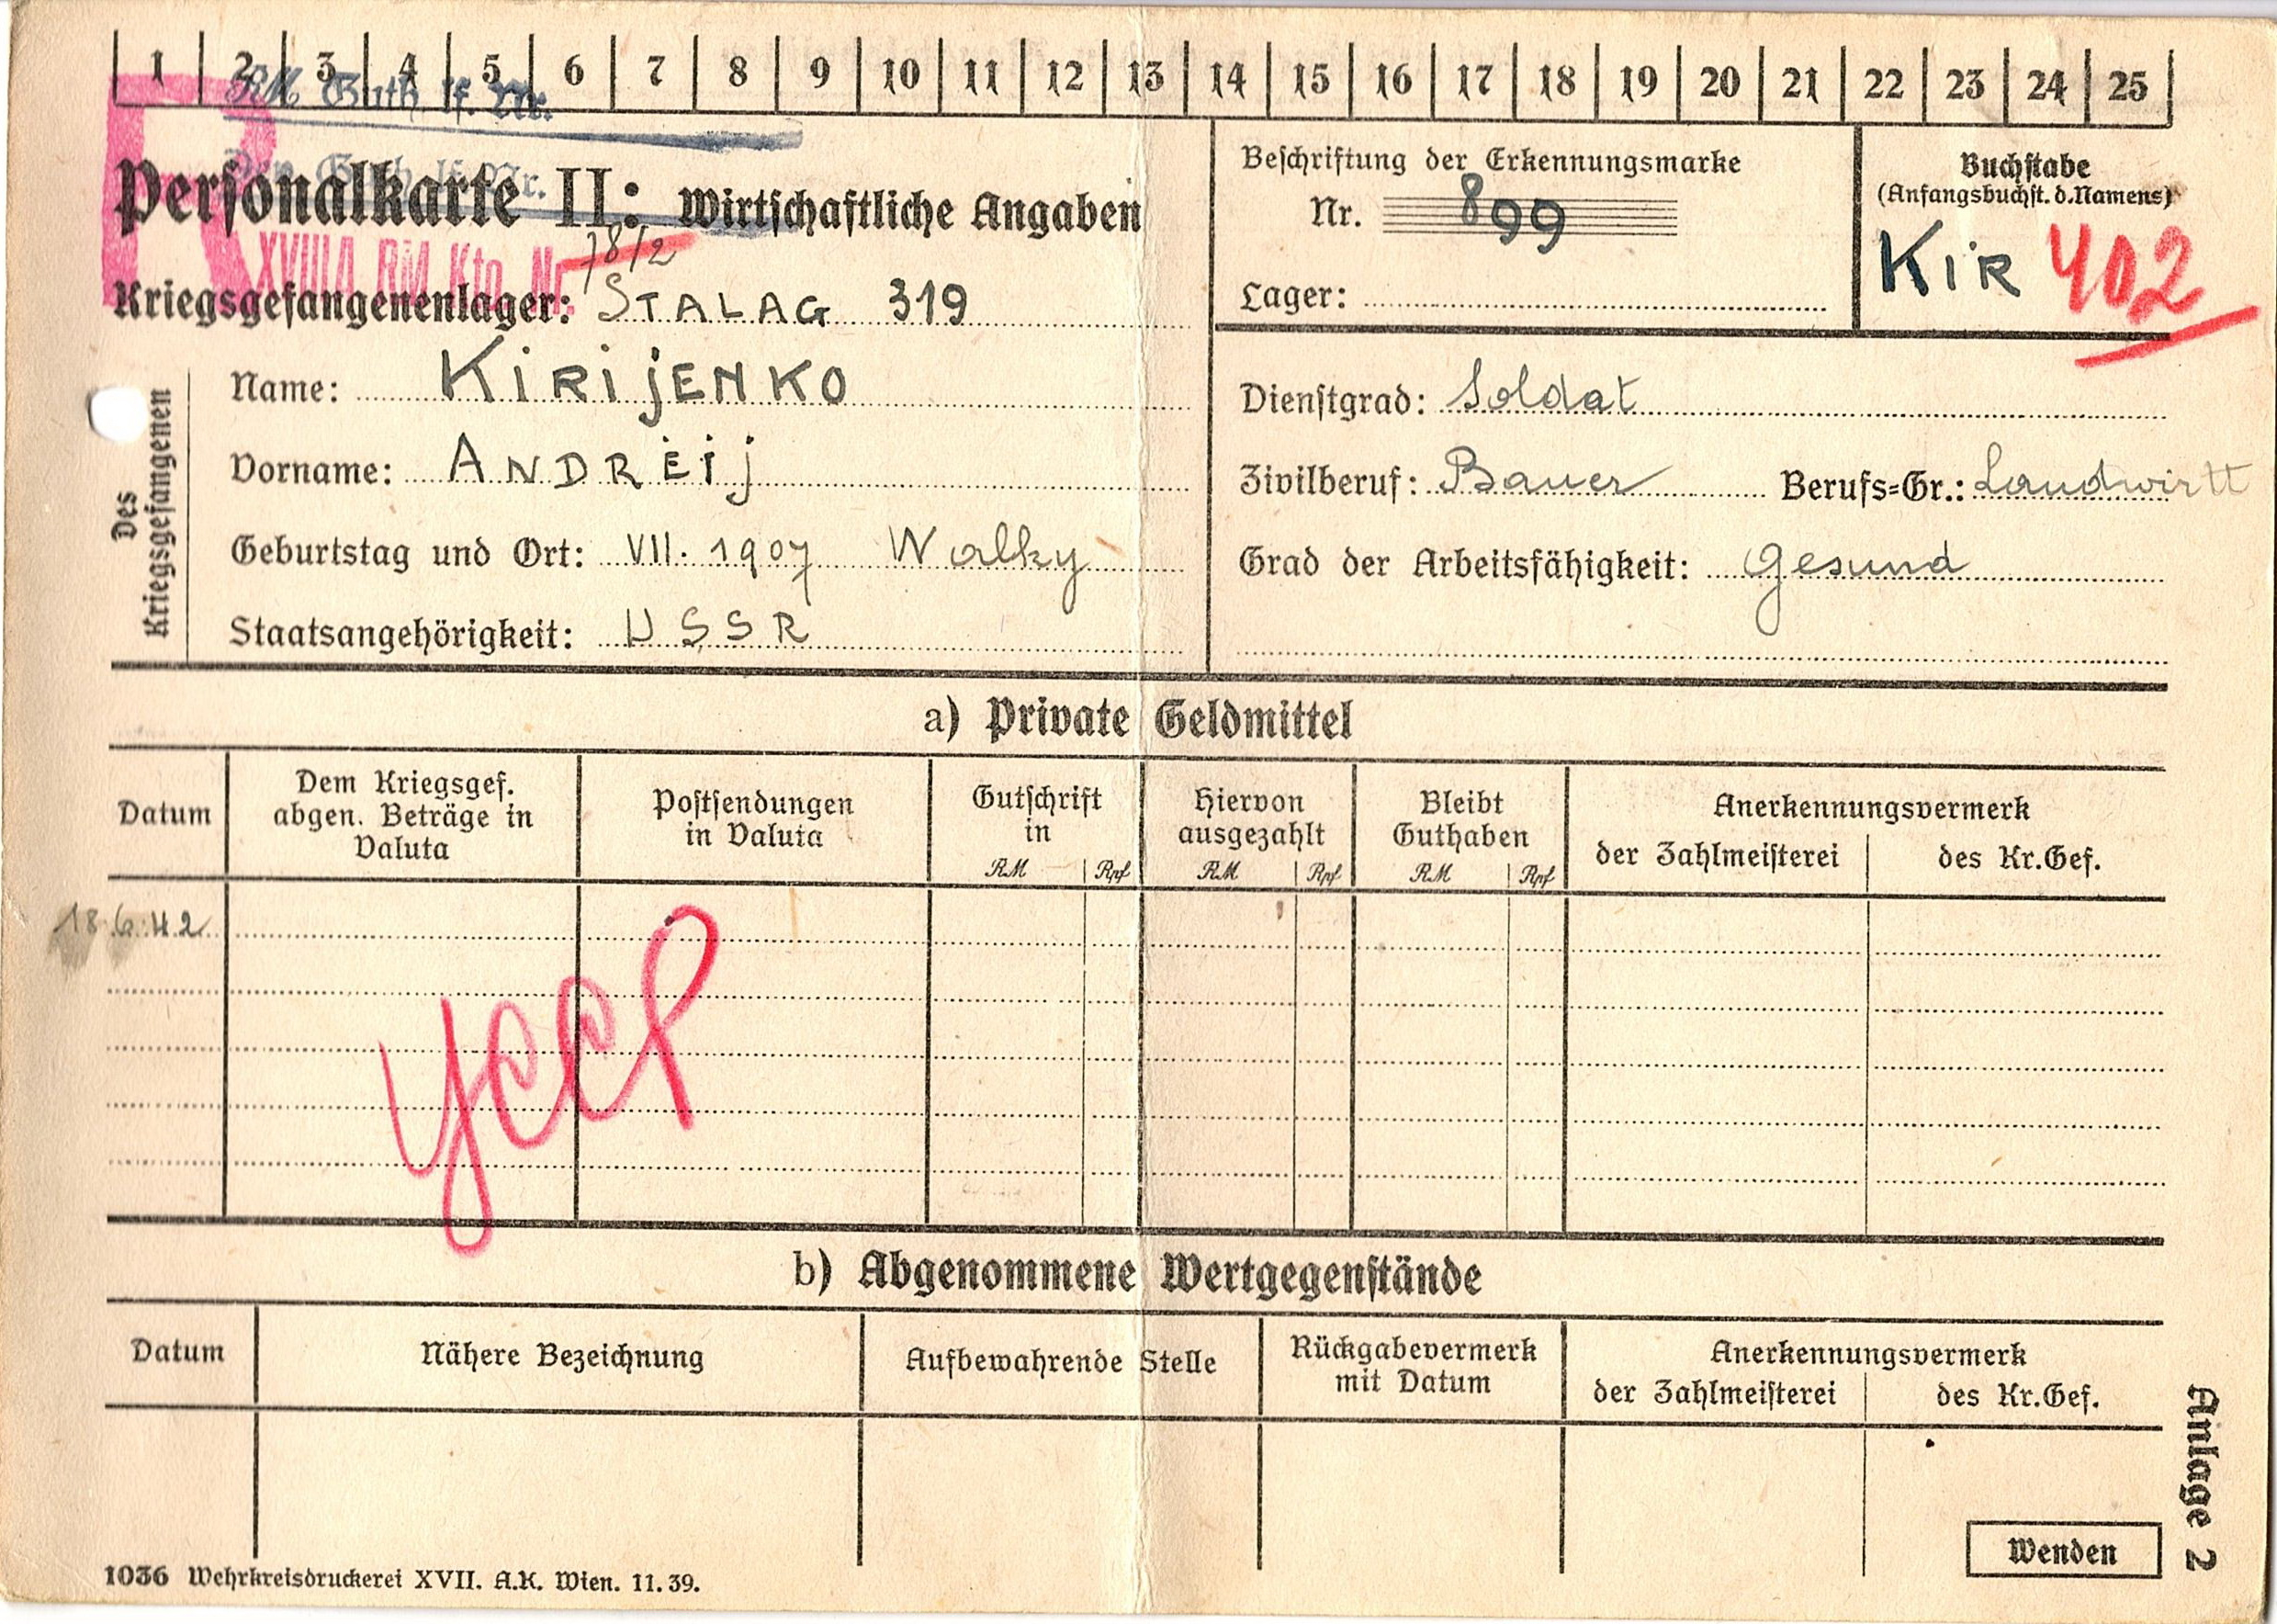 1 2 3 4 5 6 7 8 9 10 11 12 13 14 15 16 17 18 19 20 21 22 23 24 25
RM Guth. lf. Nr.
Guth. lf. Nr.
Personalkarte II: Wirtschaftliche Angaben
R
XVIIIA RM Kto. Nr.
78/2
Kriegsgefangenenlager: STALAG 319
Beschriftung der Erkennungsmarke
Nr. 899
Lager:
Buchstabe
(Anfangsbuchst. d. Namens)
KIR 402
Des
Kriegsgefangenen
Name: KIRIJENKO
Vorname: ANDREIJ
Geburtstag und Ort: VII. 1907 Walky
Staatsangehörigkeit: USSR
Dienstgrad: Soldat
Zivilberuf: Bauer Berufs=Gr.: Landwirtt
Grad der Arbeitsfähigkeit: Gesund
a) Private Geldmittel
Datum
Dem Kriegsgef.
abgen. Beträge in
Valuta
Postsendungen
in Valuta
Gutschrift
in
RM Rpf
Hiervon
ausgezahlt
RM Rpf
Bleibt
Guthaben
RM Rpf
Anerkennungsvermerk
der Zahlmeisterei des Kr.Gef.
18.6.42
УССР
b) Abgenommene Wertgegenstände
Datum
Nähere Bezeichnung
Aufbewahrende Stelle
Rückgabevermerk
mit Datum
Anerkennungsvermerk
der Zahlmeisterei des Kr.Gef.
Anlage 2
Wenden
1036 Wehrkreisdruckerei XVII. A.K. Wien. 11.39.